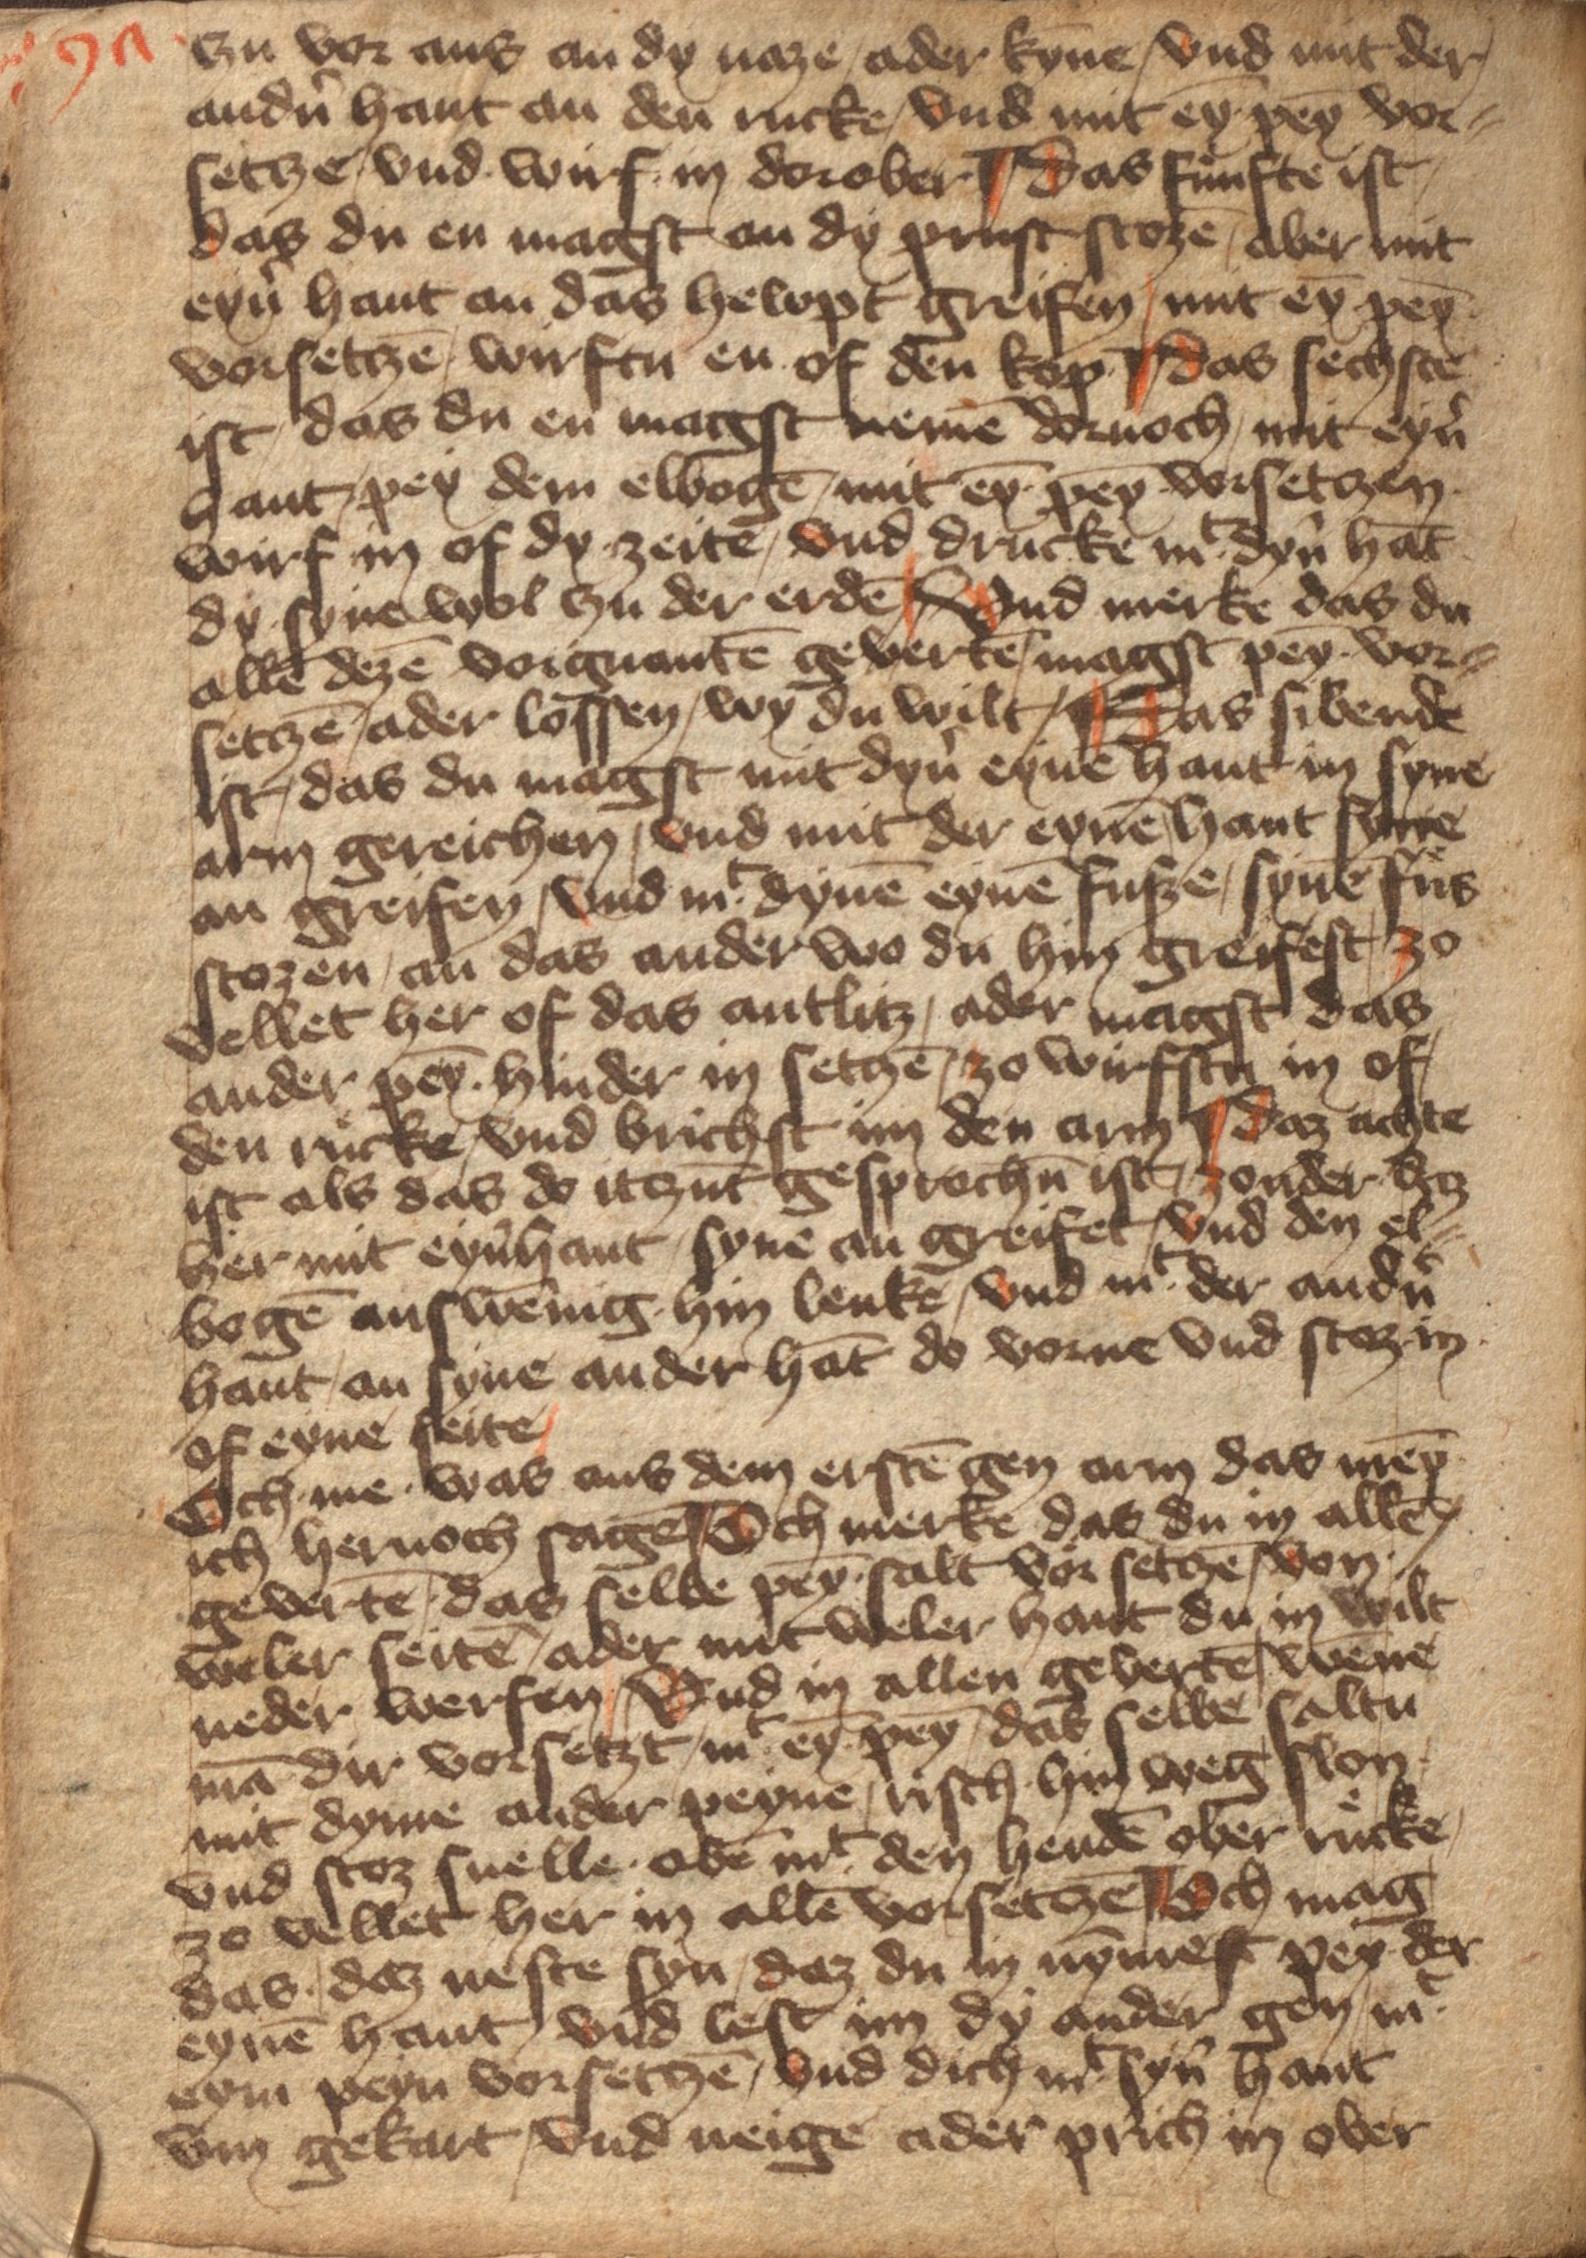 czu vor aus an dy naze / ader kȳne / vnd mit der
andn̄ hant an den rucke / vnd mit eȳ pēy vor=
setcze / vnd wirf in dorober ¶ das fünfte ist /
das du en magst an dy prust stozē / aber mit
eyn̄ hant an das hewpt greifen / mit eȳ pēy
vorsetczē wirftu en of den kop ¶ das sechste
ist / das du en magst nemē dornoch / mit eyn̄
hant / pey dem elbogē / mit eȳ pēy vorsetczen
wirf in of dy zeitē / vnd drucke mt dyn̄ hāt
dy syne wol czu der erdē / Vnd merke das du
allē dezē vorguantē gevertē / magst pēy vor=
setczē / ader lossen / wy du wilt / ¶ Das sibende
ist / das du magst mit dyn̄ eynē hant in syne
arm gereichen / vnd mit der eynē hant syne
an greifen / vnd mt dynē eynē fusze / synē füs
stozen / an das ander wo du hin greifest / zo
vellet her of das antlitz / ader magst das
ander pēy hinder in setczē / zo wirfstu in of
den rücke / vnd brichst im den arm ¶ daz achte
ist als das do itczūt gesprochn̄ ist / zonder daz
her mit eyn̄ hant / syne an greifet / vnd den el=
bogē auswēnig hin lenkē / vnd mt der andn̄
hant / an syne ander hāt do vorne vnd stoz in
of eyne seite /
Och me was aus dem erstē gen arm das
ich hernoch sagē ¶ Och merke das du in allē /
gevertē / das selbe pēy salt vor setczē / von
weler seitē / ader mit weler hant du in wilt
neder werfen / Vnd in allen gevertē / wēne
mā dir vorsetzt / mt eȳ pēy / das selbe saltu
mit dyme ander peyne / risch hin weg slon
vnd stoz snelle obē mt den hendē ober rücke /
zo vellet her in allē vorsetczē ¶ Och mag
das daz neste syn / daz du in nȳmest pēy der
eynē hant / vnd lest im dy ander gen / mt
eym peyn vorsetczē / vnd dich mt syn̄ hant
vm gekart / vnd neige ader prich in ober